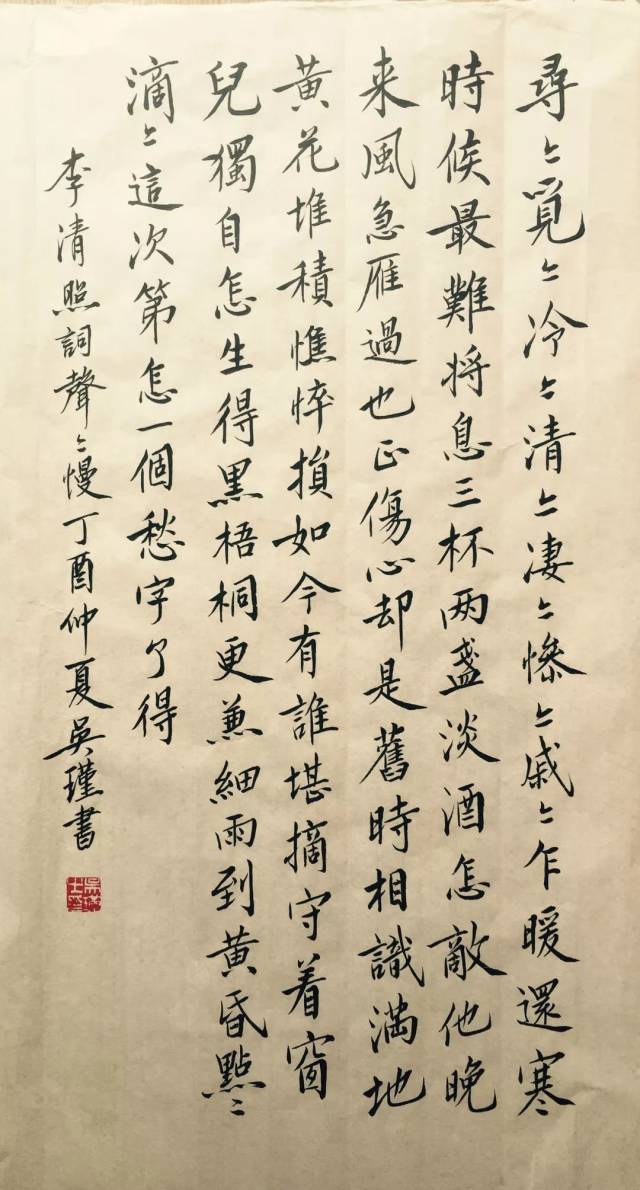 尋〻覓〻冷〻清〻凄〻慘〻戚〻乍暖還寒
時候最難將息三杯两盞淡酒怎敵他晚
来風急雁過也正傷心却是舊時相識滿地
黃花堆積憔悴損如今有誰堪摘守着窗
兒獨自怎生得黑梧桐更兼細雨到黃昏點〻
滴〻這次第怎一個愁字了得
李清照詞聲〻慢丁酉仲夏吳瑾書